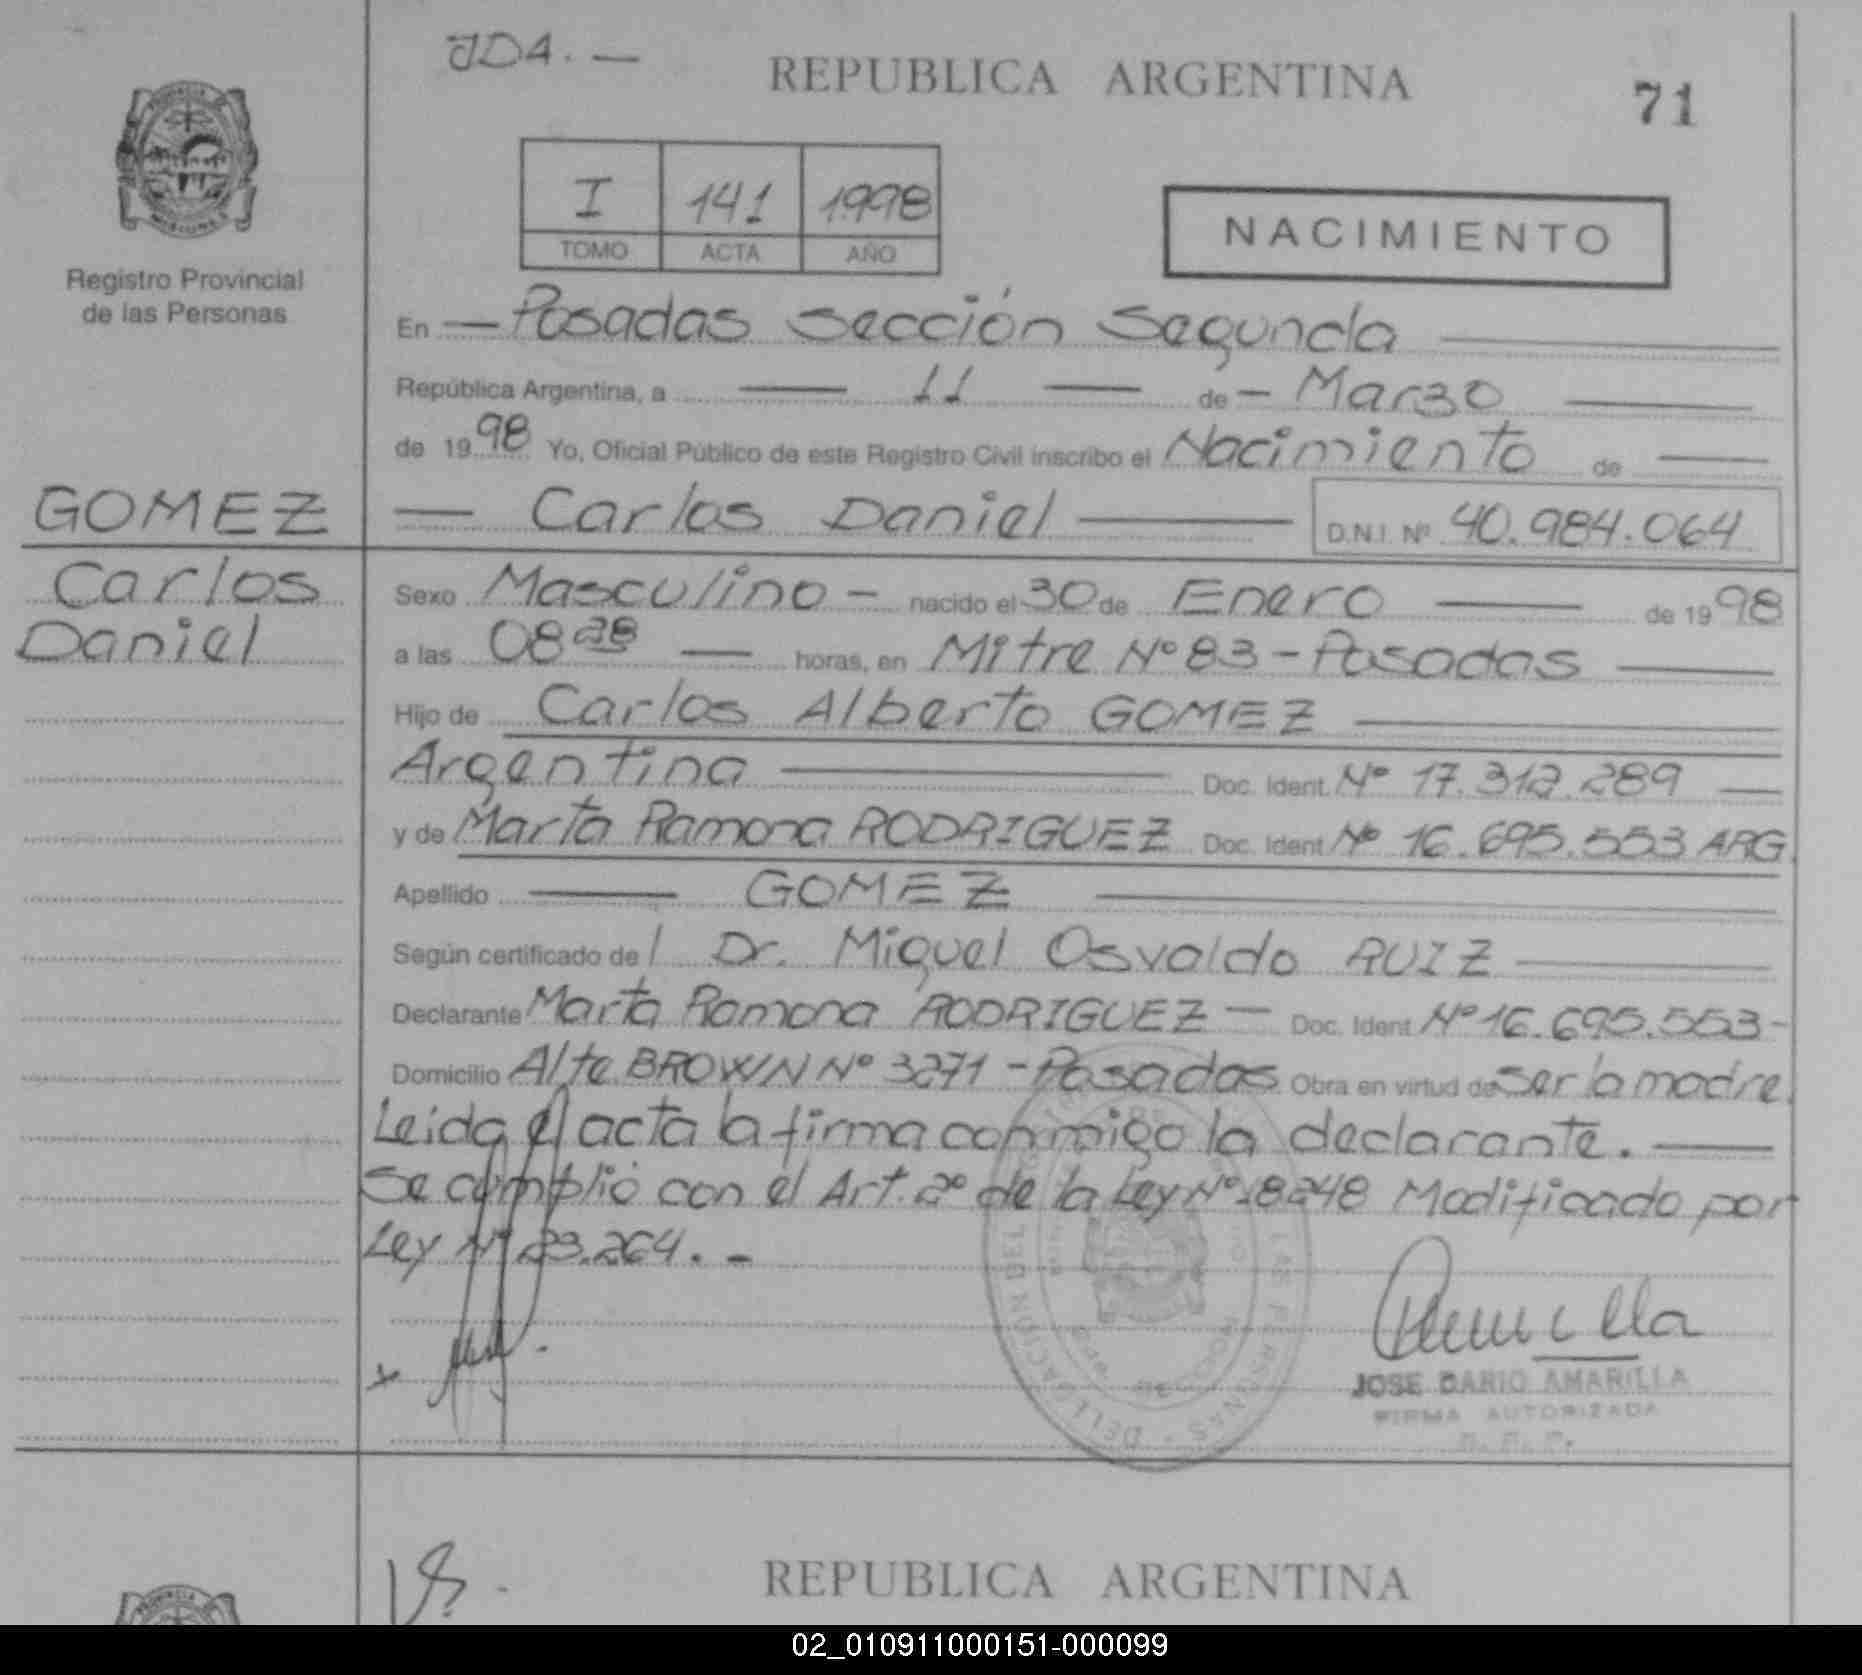 JDA. —
REPUBLICA ARGENTINA
71
I 141 1998
TOMO ACTA AÑO
NACIMIENTO
Registro Provincial
de las Personas
En — Posadas Sección Segunda —
República Argentina, a — 11 — de — Marzo —
de 1998 Yo, Oficial Público de este Registro Civil inscribo el Nacimiento de —
GOMEZ
— Carlos Daniel — D.N.I. Nº 40.984.064
Carlos
Daniel
Sexo Masculino — nacido el 30 de Enero — de 1998
a las 08 28 — horas, en Mitre Nº 83 - Posadas —
Hijo de Carlos Alberto GOMEZ —
Argentina — Doc. Ident. Nº 17.312.289 —
y de Marta Ramona RODRIGUEZ Doc. Ident Nº 16.695.553 ARG.
Apellido — GOMEZ —
Según certificado del Dr. Miguel Osvaldo RUIZ —
Declarante Marta Ramona RODRIGUEZ — Doc. Ident Nº 16.695.553 -
Domicilio Alte. BROWN Nº 3271 - Posadas Obra en virtud de ser la madre.
Leida el acta la firma conmigo la declarante. —
Se cumplió con el Art. 2º de la Ley Nº 18.248 Modificado por
Ley Nº 23.264. -
JOSE DARIO AMARILLA
FIRMA AUTORIZADA
R. P. P.
REPUBLICA ARGENTINA
02_010911000151-000099